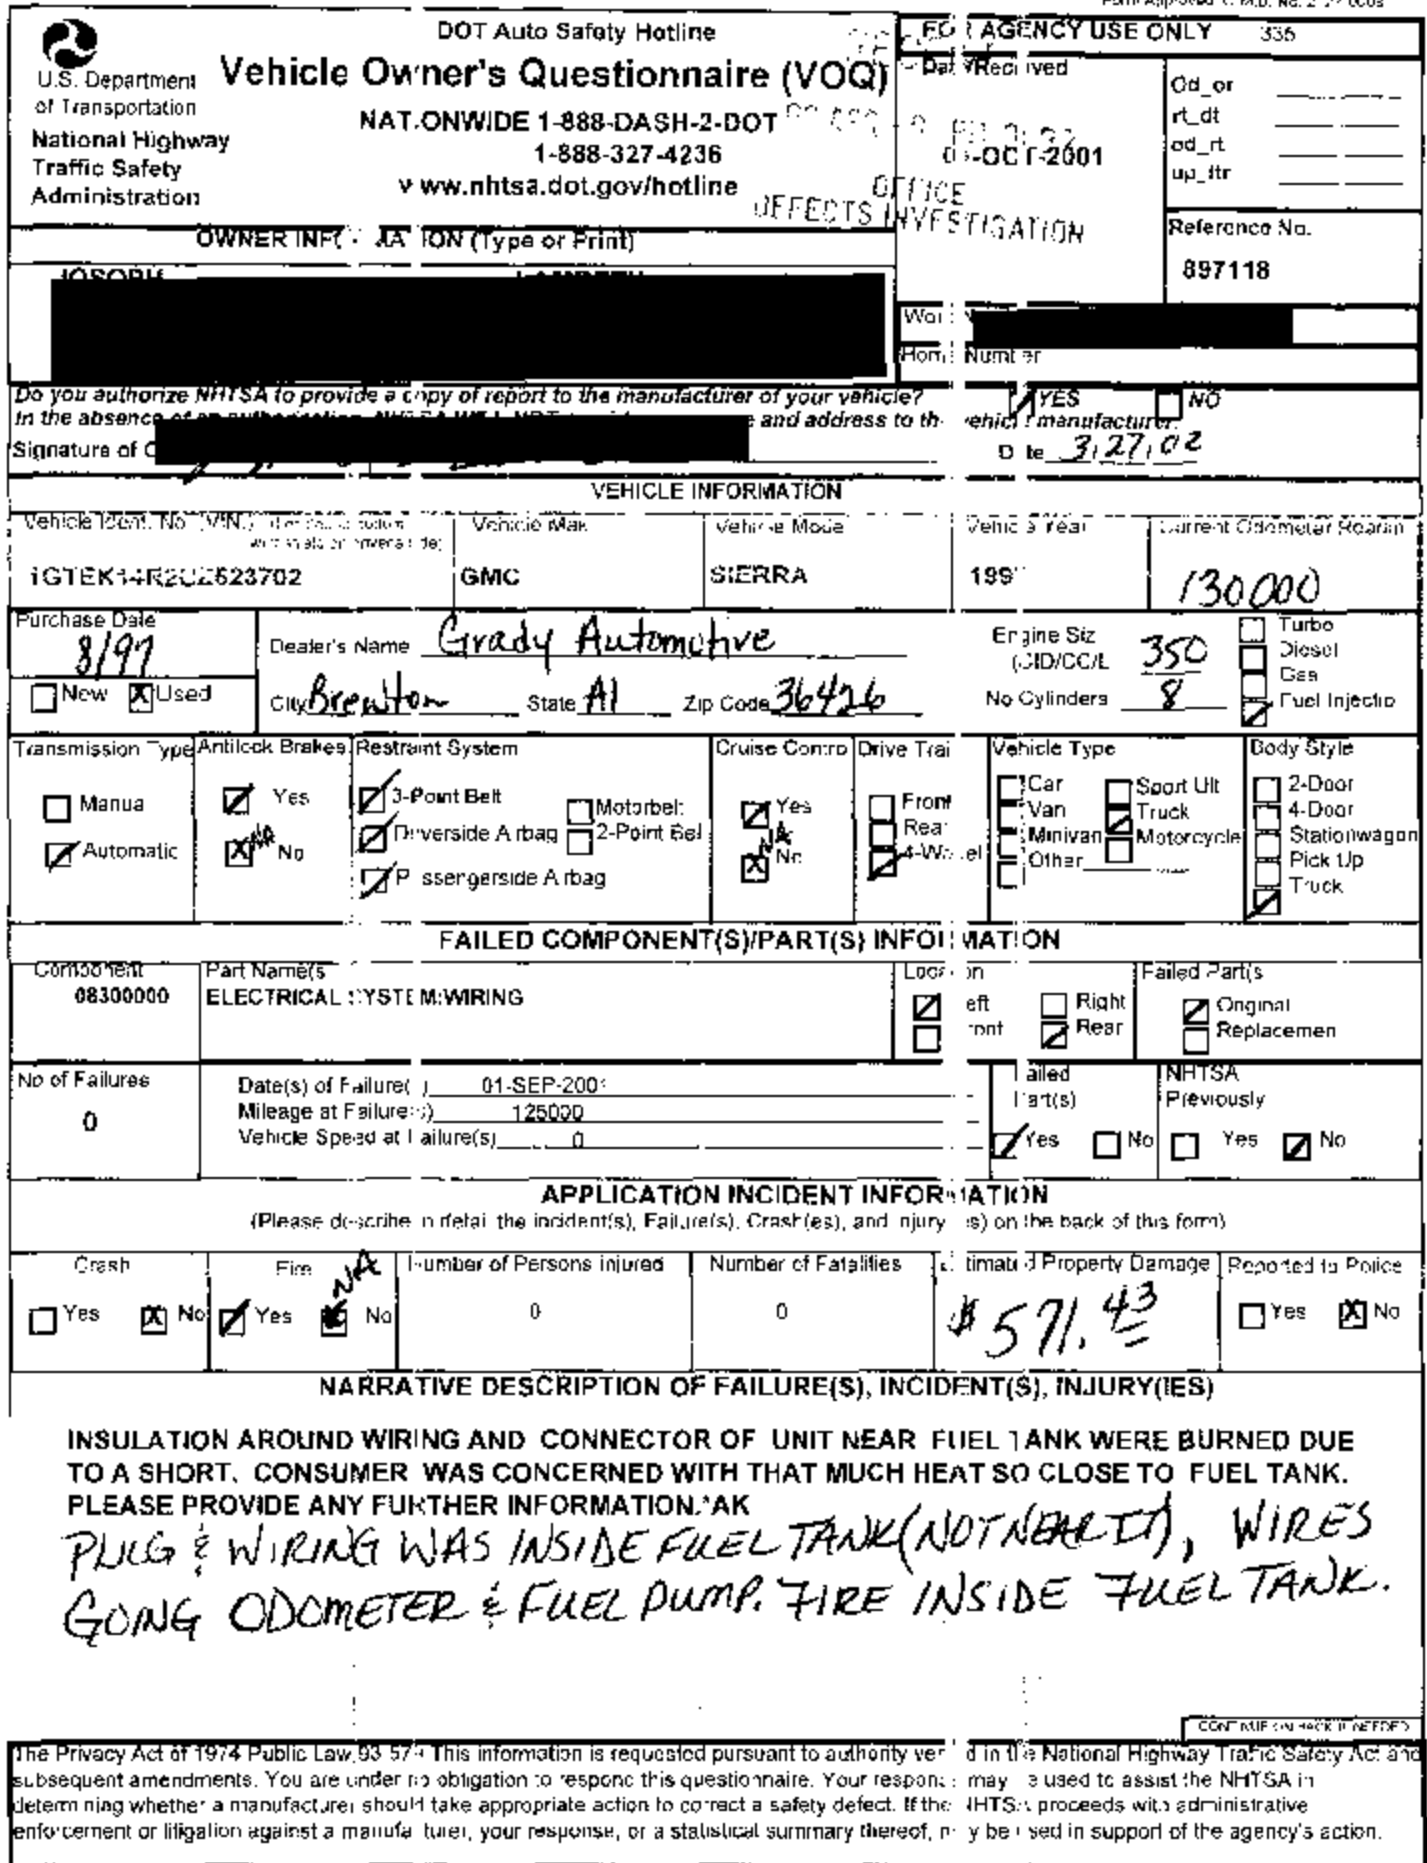 DOT Auto Safety Hotline
FOR AGENCY USE ONLY 335
U.S. Department
of Transportation
National Highway
Traffic Safety
Administration
Vehicle Owner's Questionnaire (VOQ)
NAT.ONWIDE 1-888-DASH-2-DOT
1-888-327-4236
www.nhtsa.dot.gov/hotline
Date Received
-OCT-2001
OFFICE
DEFECTS INVESTIGATION
Od_or
rt_dt
od_rt
up_ltr
Reference No.
897118
OWNER INFORMATION (Type or Print)
Home Number
Do you authorize NHTSA to provide a copy of report to the manufacturer of your vehicle? YES NO
In the absence of and address to the vehicle manufacturer.
Signature of Date 3/27/02
VEHICLE INFORMATION
Vehicle Ident. No. (VIN)
Vehicle Mak
Vehicle Mode
Vehicle Year
Current Odometer Readin
GMC
SIERRA
199
130,000
Purchase Date
8/97
New X Used
Dealer's Name Grady Automotive
City Brewton State Al Zip Code 36426
Engine Siz
(CID/CC/L 350
No Cylinders 8
Turbo
Diesel
Gas
Fuel Injectio
Transmission Type
Manua
Automatic
Antilock Brakes
Yes
X No
Restraint System
3-Point Belt
Motorbelt
Driverside Airbag
2-Point Bel
Passengerside Airbag
Cruise Contro
Yes
X No
Drive Trai
Front
Rear
4-Wheel
Vehicle Type
Car
Van
Minivan
Other
Sport Ult
Truck
Motorcycle
Body Style
2-Door
4-Door
Stationwagon
Pick Up
Truck
FAILED COMPONENT(S)/PART(S) INFORMATION
Component
08300000
Part Name(s
ELECTRICAL SYSTEM:WIRING
Location
Left
Front
Right
Rear
Failed Part(s
Original
Replacemen
No of Failures
0
Date(s) of Failure(s) 01-SEP-200
Mileage at Failure(s) 125000
Vehicle Speed at Failure(s) 0
Failed
Part(s)
Yes No
NHTSA
Previously
Yes No
APPLICATION INCIDENT INFORMATION
(Please describe in detail the incident(s), Failure(s), Crash(es), and injury(ies) on the back of this form)
Crash
Yes X No
Fire
Yes No NA
Number of Persons injured
0
Number of Fatalities
0
Estimated Property Damage
$571.43
Reported to Police
Yes X No
NARRATIVE DESCRIPTION OF FAILURE(S), INCIDENT(S), INJURY(IES)
INSULATION AROUND WIRING AND CONNECTOR OF UNIT NEAR FUEL TANK WERE BURNED DUE
TO A SHORT. CONSUMER WAS CONCERNED WITH THAT MUCH HEAT SO CLOSE TO FUEL TANK.
PLEASE PROVIDE ANY FURTHER INFORMATION.*AK
PLUG & WIRING WAS INSIDE FUEL TANK (NOT NEAR IT), WIRES
GOING ODOMETER & FUEL PUMP. FIRE INSIDE FUEL TANK.
CONTINUE ON BACK IF NEEDED
The Privacy Act of 1974 Public Law 93-579 This information is requested pursuant to authority vested in the National Highway Traffic Safety Act and
subsequent amendments. You are under no obligation to respond this questionnaire. Your response may be used to assist the NHTSA in
determining whether a manufacturer should take appropriate action to correct a safety defect. If the NHTSA proceeds with administrative
enforcement or litigation against a manufacturer, your response, or a statistical summary thereof, may be used in support of the agency's action.